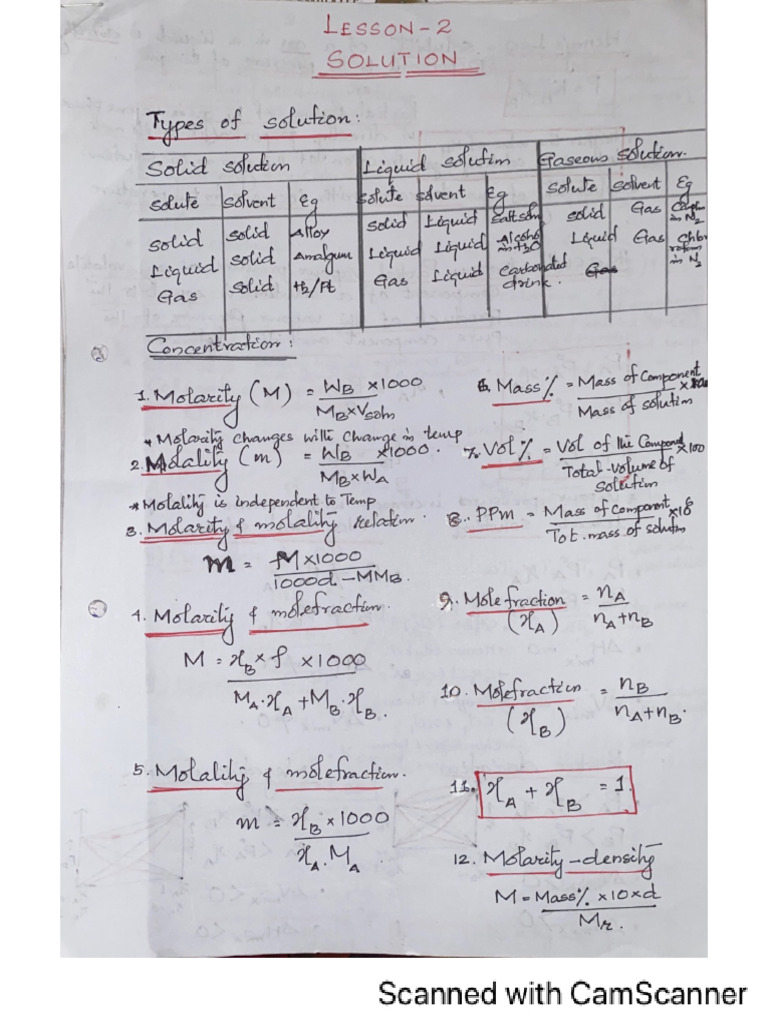 LESSON-2
SOLUTION
Types of solution:
Solid solution Liquid solution Gaseous solution.
Solute Solvent Eg Solute solvent Eg Solute Solvent Eg
Solid Solid Alloy Solid Liquid Salt soln Solid Gas in N2
Liquid Solid Amalgum Liquid Liquid Alcohol in H2O Liquid Gas in N2
Gas Solid H2/Pt Gas Liquid Carbonated drink. Gas
Concentration:
1. Molarity (M) = WB ×1000 / MB×Vsoln
* Molarity changes with change in temp
2. Molality (m) = WB ×1000. / MB×WA
* Molality is independent to Temp
3. Molarity & molality Relation.
m = M×1000 / 1000d-MMB
4. Molarity & molefraction.
M = xB × f × 1000 / MA·xA + MB·xB.
5. Molality & molefraction.
m = xB × 1000 / xA. MA
6. Mass% = Mass of Component ×100 / Mass of solution
7. Vol% = Vol of the Compond ×100 / Total-volume of solution
8. PPm = Mass of Component ×10^6 / Tot. mass of solution
9. Mole fraction (xA) = nA / nA+nB
10. Molefraction (xB) = nB / nA+nB.
11. xA + xB = 1.
12. Molarity-density
M = Mass% ×10×d / Mr.
Scanned with CamScanner